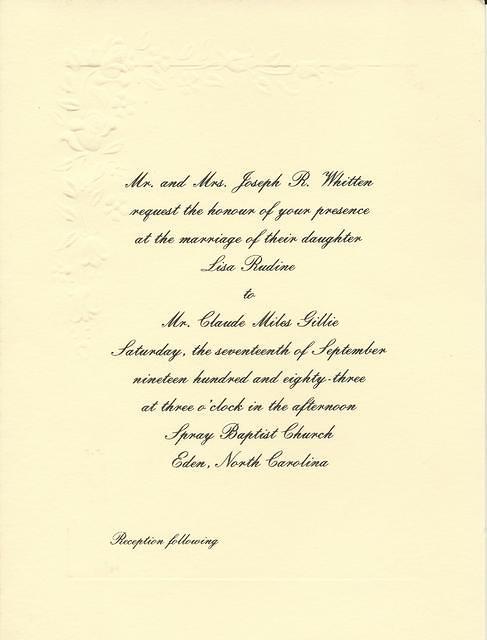 Mr. and Mrs. Joseph R. Whitten
request the honour of your presence
at the marriage of their daughter
Lisa Rudine
to
Mr. Claude Miles Gillie
Saturday, the seventeenth of September
nineteen hundred and eighty-three
at three o'clock in the afternoon
Spray Baptist Church
Eden, North Carolina
Reception following